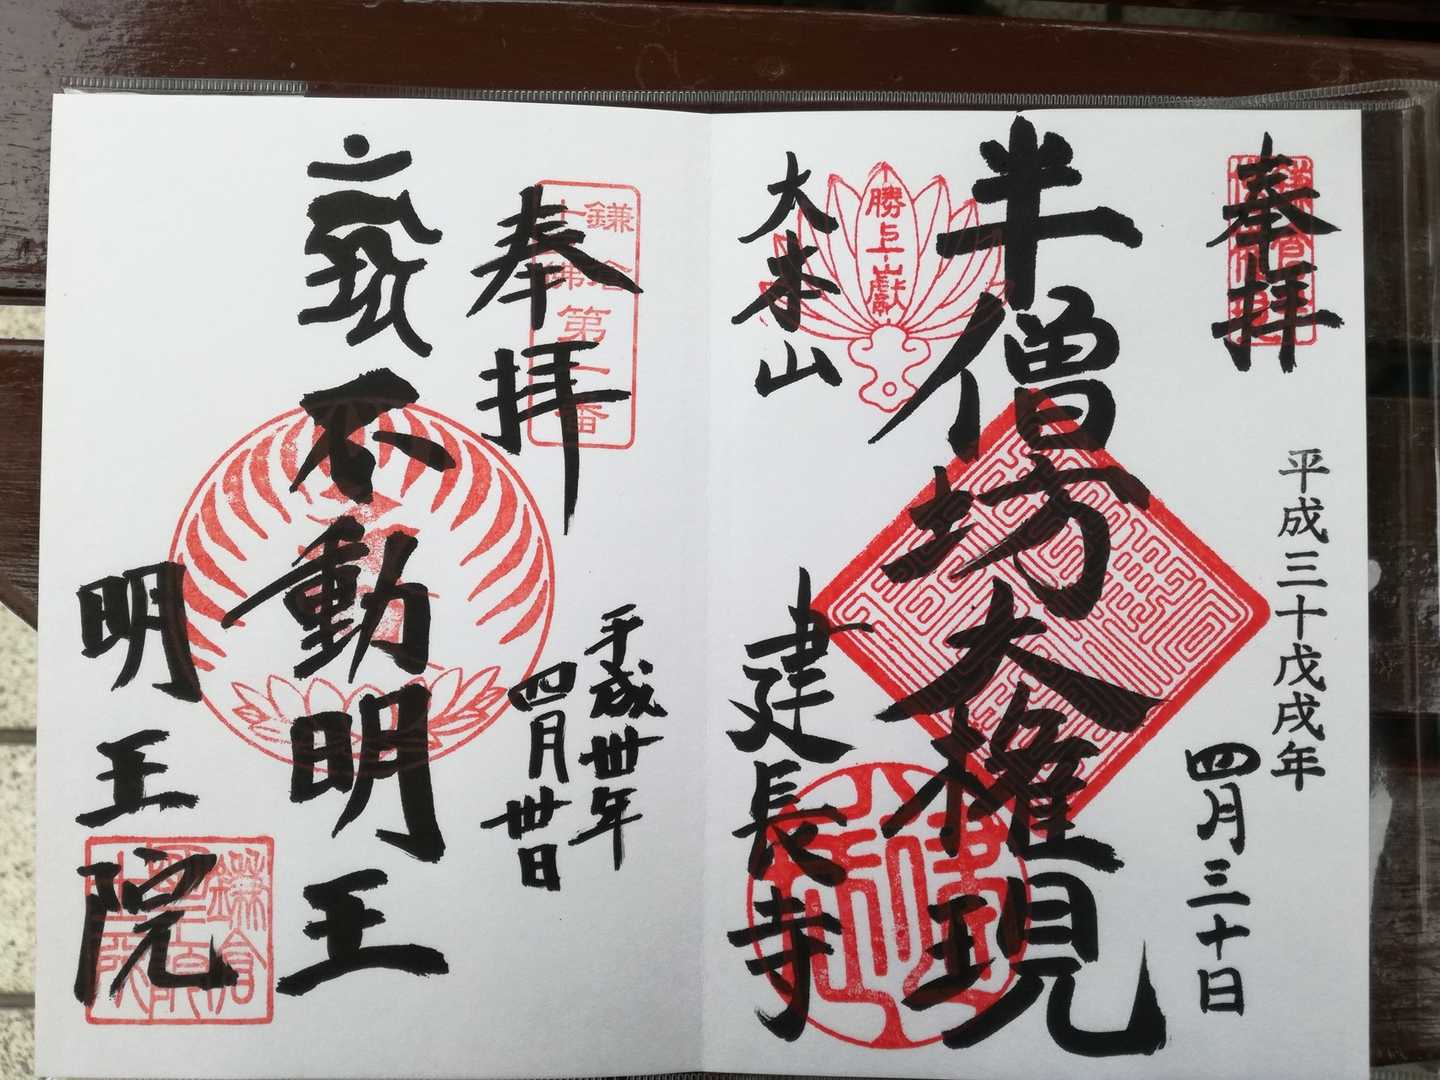 奉拝
平成三十戊戌年
四月三十日
半僧坊大権現
勝上嶽
大本山
建長寺
奉拝
鎌倉
十三佛第一番
平成卅年
四月卅日
不動明王
明王院